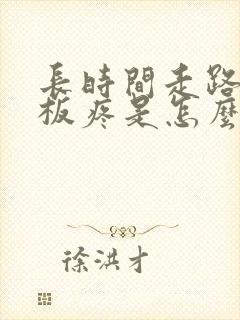 長時間走路
板疼是怎麼
徐洪才